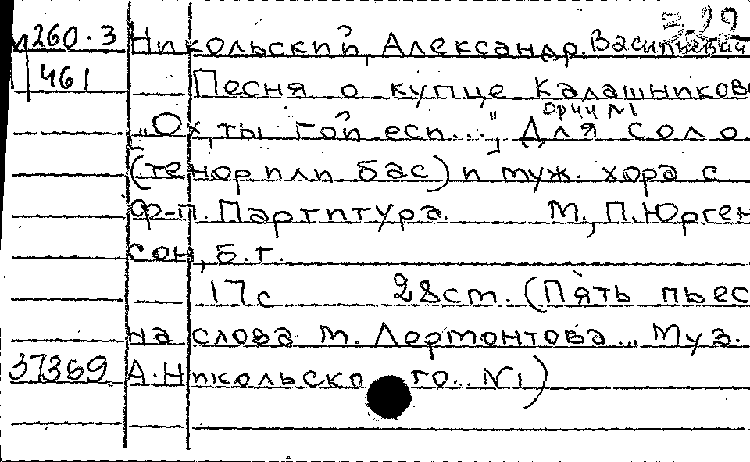 260.3 Никольский, Александр Васильевич
461 Песня о купце Калашников
"Ох, ты гой еси...", Для соло
(тенор или бас) и муж. хора с
ф-п. Партитура. М., П. Юрген
сон, б.г.
17с 28cm. (Пять пьес
на слова М. Лермонтова... Муз.
37369 А. Никольского.. №1)